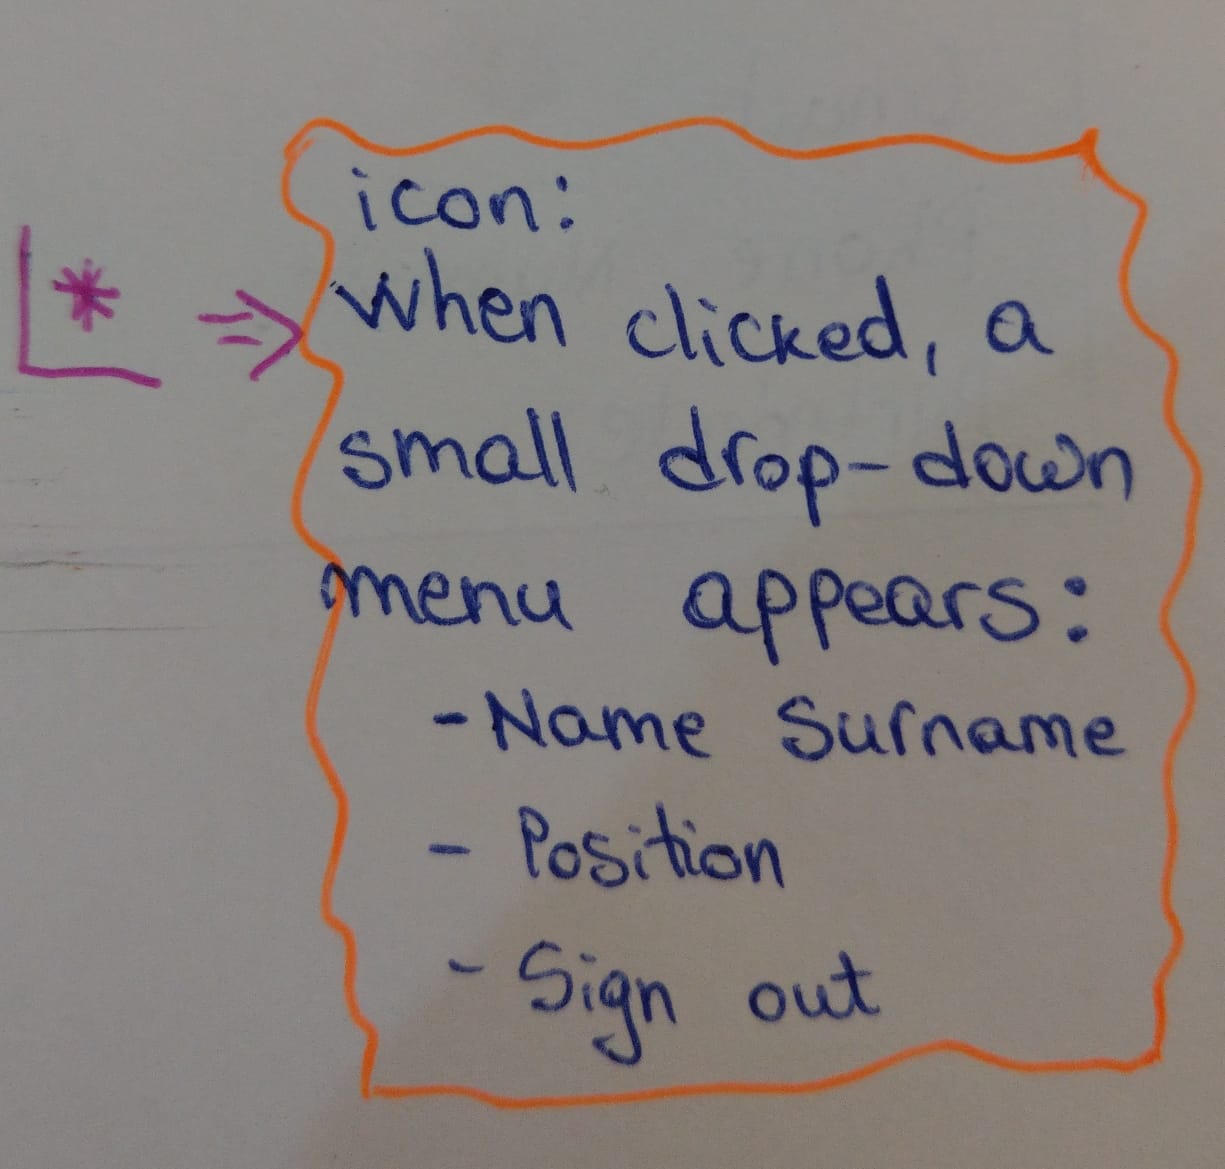 * ⇒ icon:
When clicked, a
small drop-down
menu appears:
- Name Surname
- Position
- Sign out